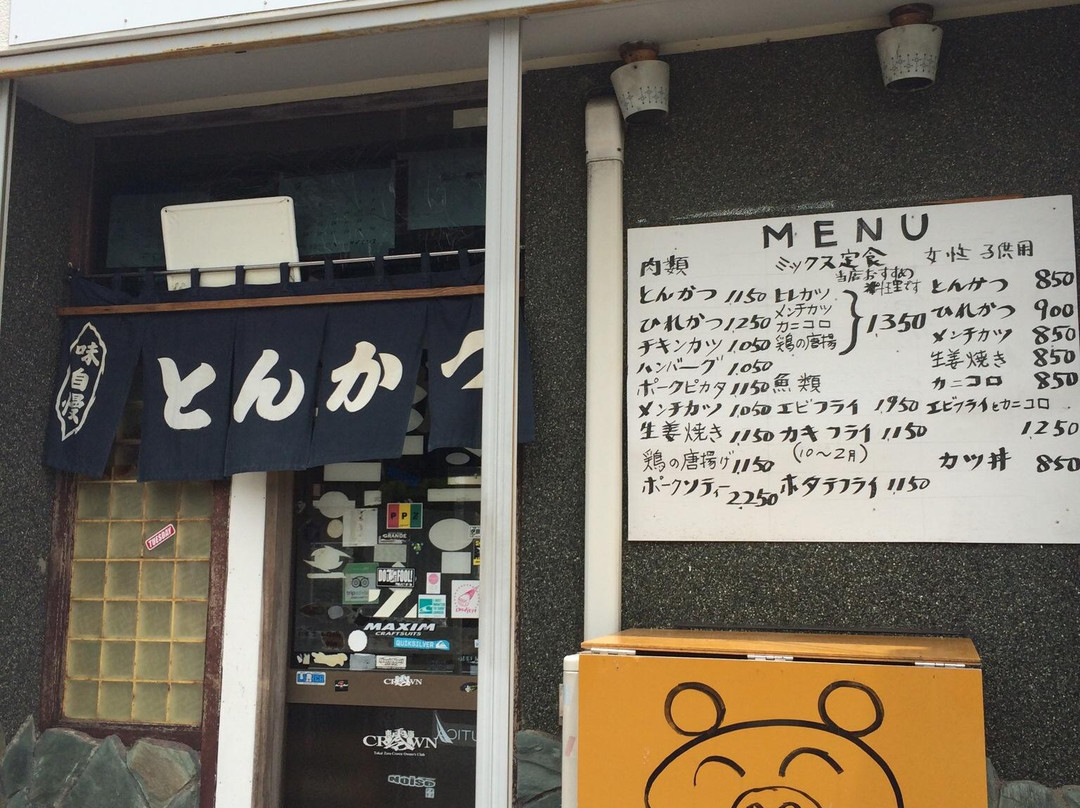 味自慢
とんかつ
TUESDAY
PPZ
GRANDE
MAXIM
CRAFTSUITS
QUIKSILVER
CROWN
CROWN
MENU
肉類
とんかつ 1,150
ひれかつ 1,250
チキンカツ 1,050
ハンバーグ 1,050
ポークピカタ 1,150
メンチカツ 1,050
生姜焼き 1,150
鶏の唐揚げ 1,150
ポークソティー 2,250
ミックス定食
当店おすすめ
料理です
ヒレカツ
メンチカツ
カニコロ
鶏の唐揚
1,350
魚類
エビフライ 1,950
カキフライ 1,150
(10〜2月)
ホタテフライ 1,150
女性 子供用
とんかつ 850
ひれかつ 900
メンチカツ 850
生姜焼き 850
カニコロ 850
エビフライとカニコロ
1,250
カツ丼 850